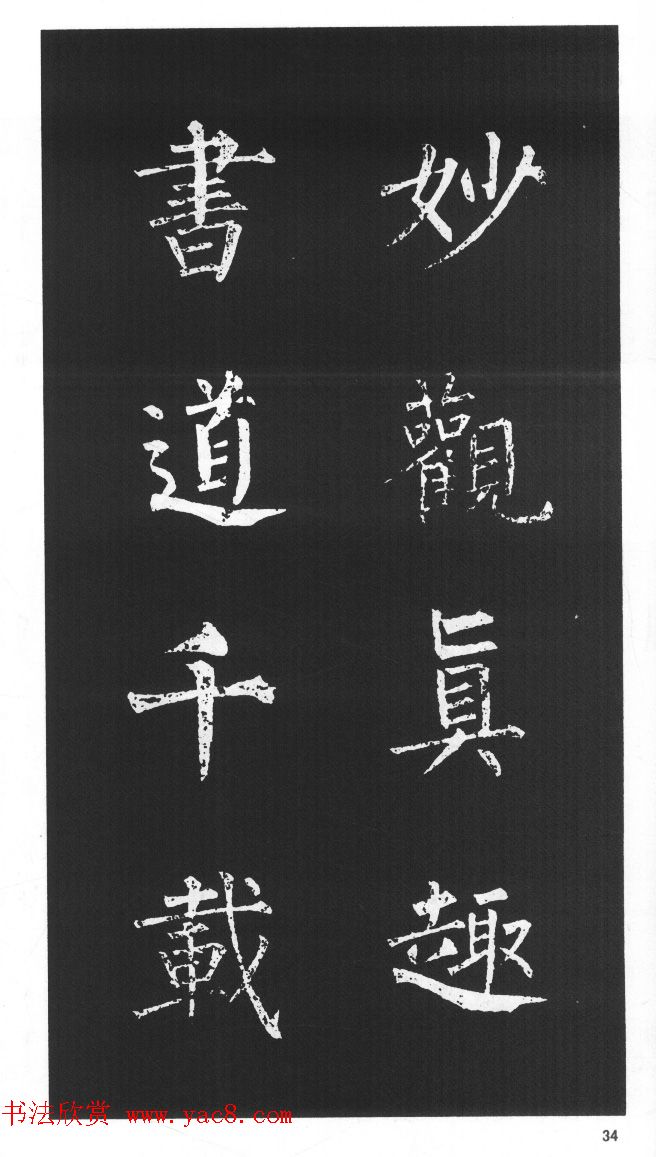 妙觀真趣
書道千載
书法欣赏 www.yac8.com
34